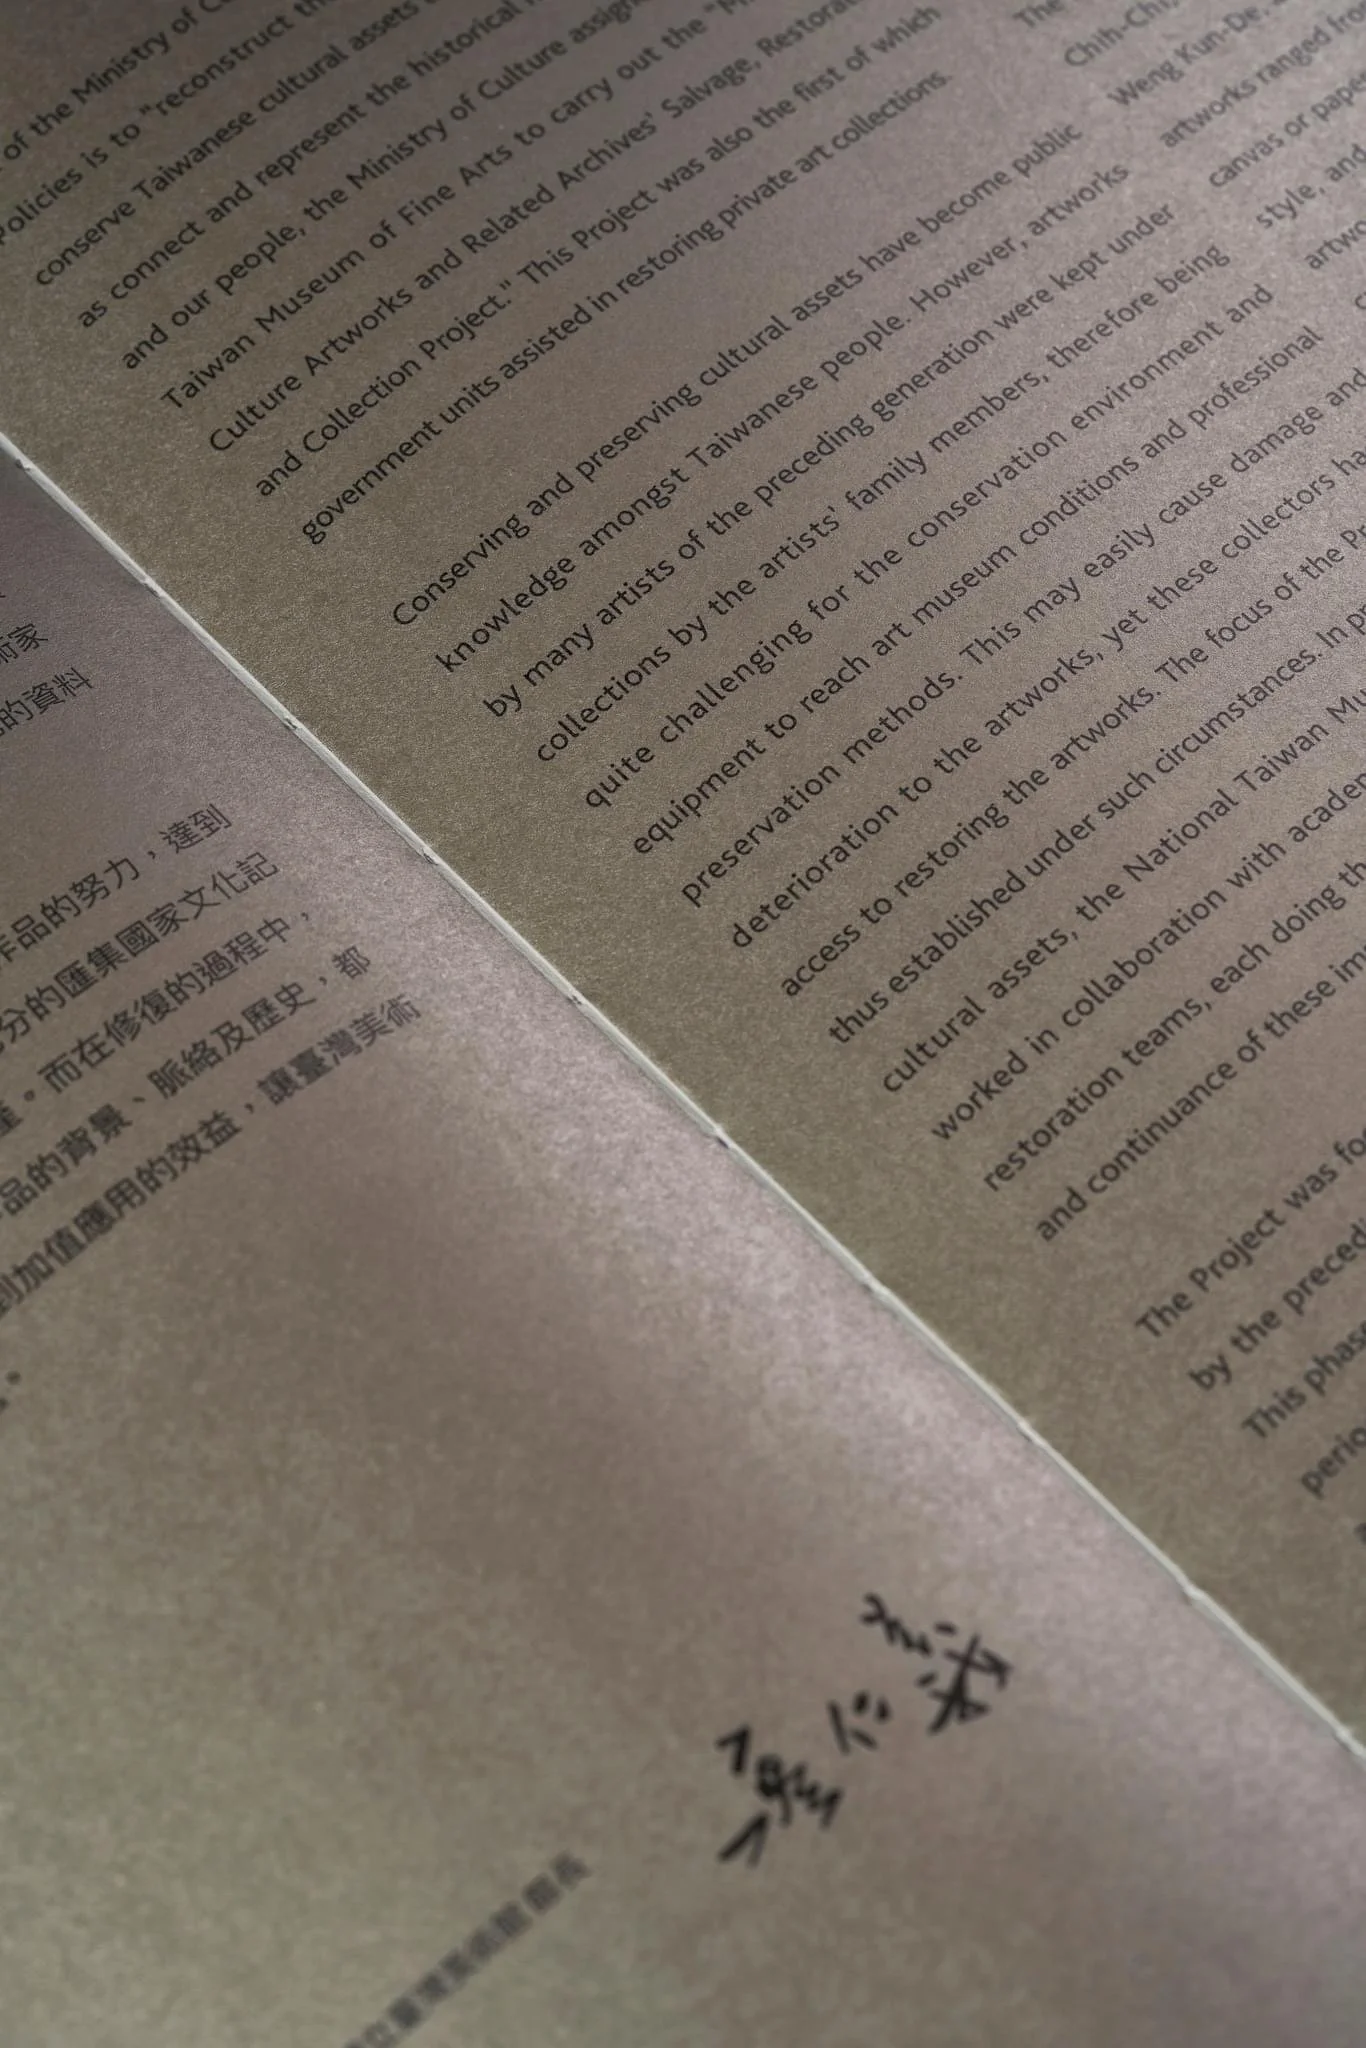 術家
的資料
作品的努力，達到
分的匯集國家文化記
。而在修復的過程中，
品的背景、脈絡及歷史，都
到加值應用的效益，讓臺灣美術
。
臺灣美術館 館長
of the Ministry of
Policies is to "reconstruct
conserve Taiwanese cultural assets
as connect and represent the historical
and our people, the Ministry of Culture
Taiwan Museum of Fine Arts to carry out the
Culture Artworks and Related Archives' Salvage,
and Collection Project." This Project was also the first of which
government units assisted in restoring private art collections.
Conserving and preserving cultural assets have become public
knowledge amongst Taiwanese people. However, artworks
by many artists of the preceding generation were kept under
collections by the artists' family members, therefore being
quite challenging for the conservation environment and
equipment to reach art museum conditions and professional
preservation methods. This may easily cause damage and
deterioration to the artworks, yet these collectors
access to restoring the artworks. The focus of the
thus established under such circumstances. In
cultural assets, the National Taiwan
worked in collaboration with
restoration teams, each doing
and continuance of these
The Project was
by the
This
The
Weng Kun-De,
artworks ranged
canvas or
style, and